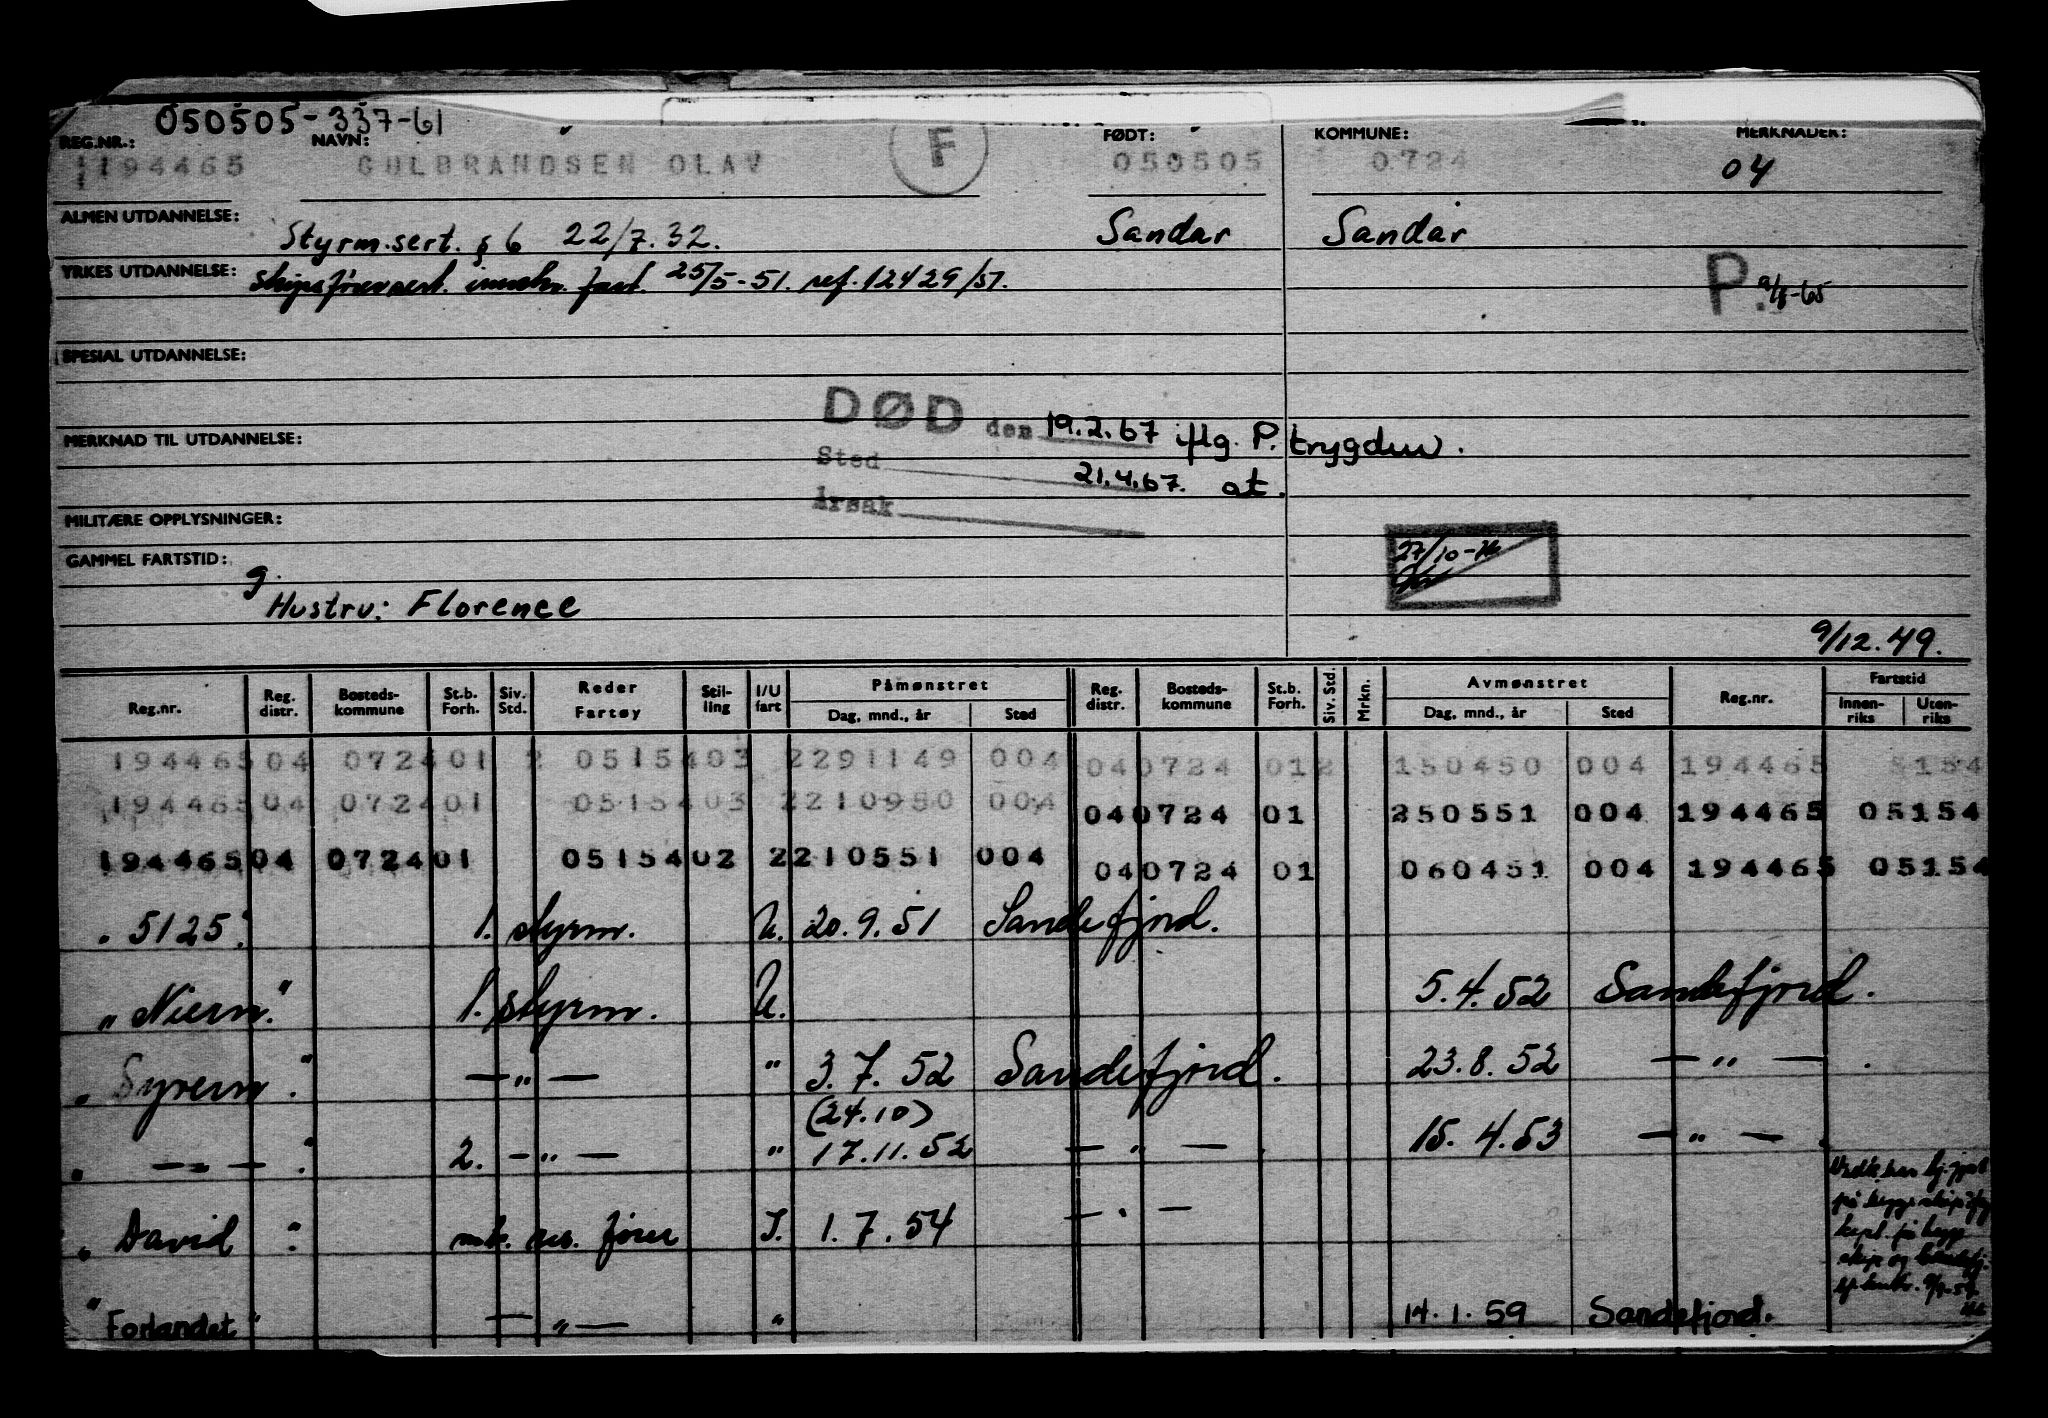 050505-337-61
REG.NR.: NAVN: FØDT: KOMMUNE: MERKNADER:
194465 GULBRANDSEN OLAV F 050505 0724 04
ALMEN UTDANNELSE: Styrm.sert. § 6 22/7.32. Sandar Sandar
YRKES UTDANNELSE: Skipsførersert. innskr. fart. 25/5-51. ref. 12429/51. P.
SPESIAL UTDANNELSE:
DØD den 19.2.67 iflg. P.trygden.
MERKNAD TIL UTDANNELSE:
Sted 21.4.67. at.
Årsak
MILITÆRE OPPLYSNINGER:
GAMMEL FARTSTID:
g.
Hustru: Florence
9/12.49.
Reg.nr. Reg. distr. Bosteds-kommune St.b. Forh. Siv. Std. Reder Fartøy Stil-ling I/U fart Påmønstret Dag, mnd., år Sted Reg. distr. Bosteds-kommune St.b. Forh. Siv. Std. Mrkn. Avmønstret Dag, mnd., år Sted Reg.nr. Fartstid Innen-riks Uten-riks
194465 04 0724 01 2 05154 03 2 291149 004 04 0724 01 2 150450 004 194465 5154
194465 04 0724 01 05154 03 2 210950 004 04 0724 01 250551 004 194465 05154
194465 04 0724 01 05154 02 2 210551 004 04 0724 01 060451 004 194465 05154
" 5125." 1. styrm. U. 20.9.51 Sandefjord.
" Niern." 1. styrm. U. 5.4.52 Sandefjord.
" Syrern." — " — " 3.7.52 Sandefjord. 23.8.52 — " — .
(24.10)
" — " — ." 2. — " — " 17.11.52 — " — . 15.4.53 — " — .
" David " fører I. 1.7.54 — " —
" Forlandet." — " — " 14.1.59 Sandefjord.